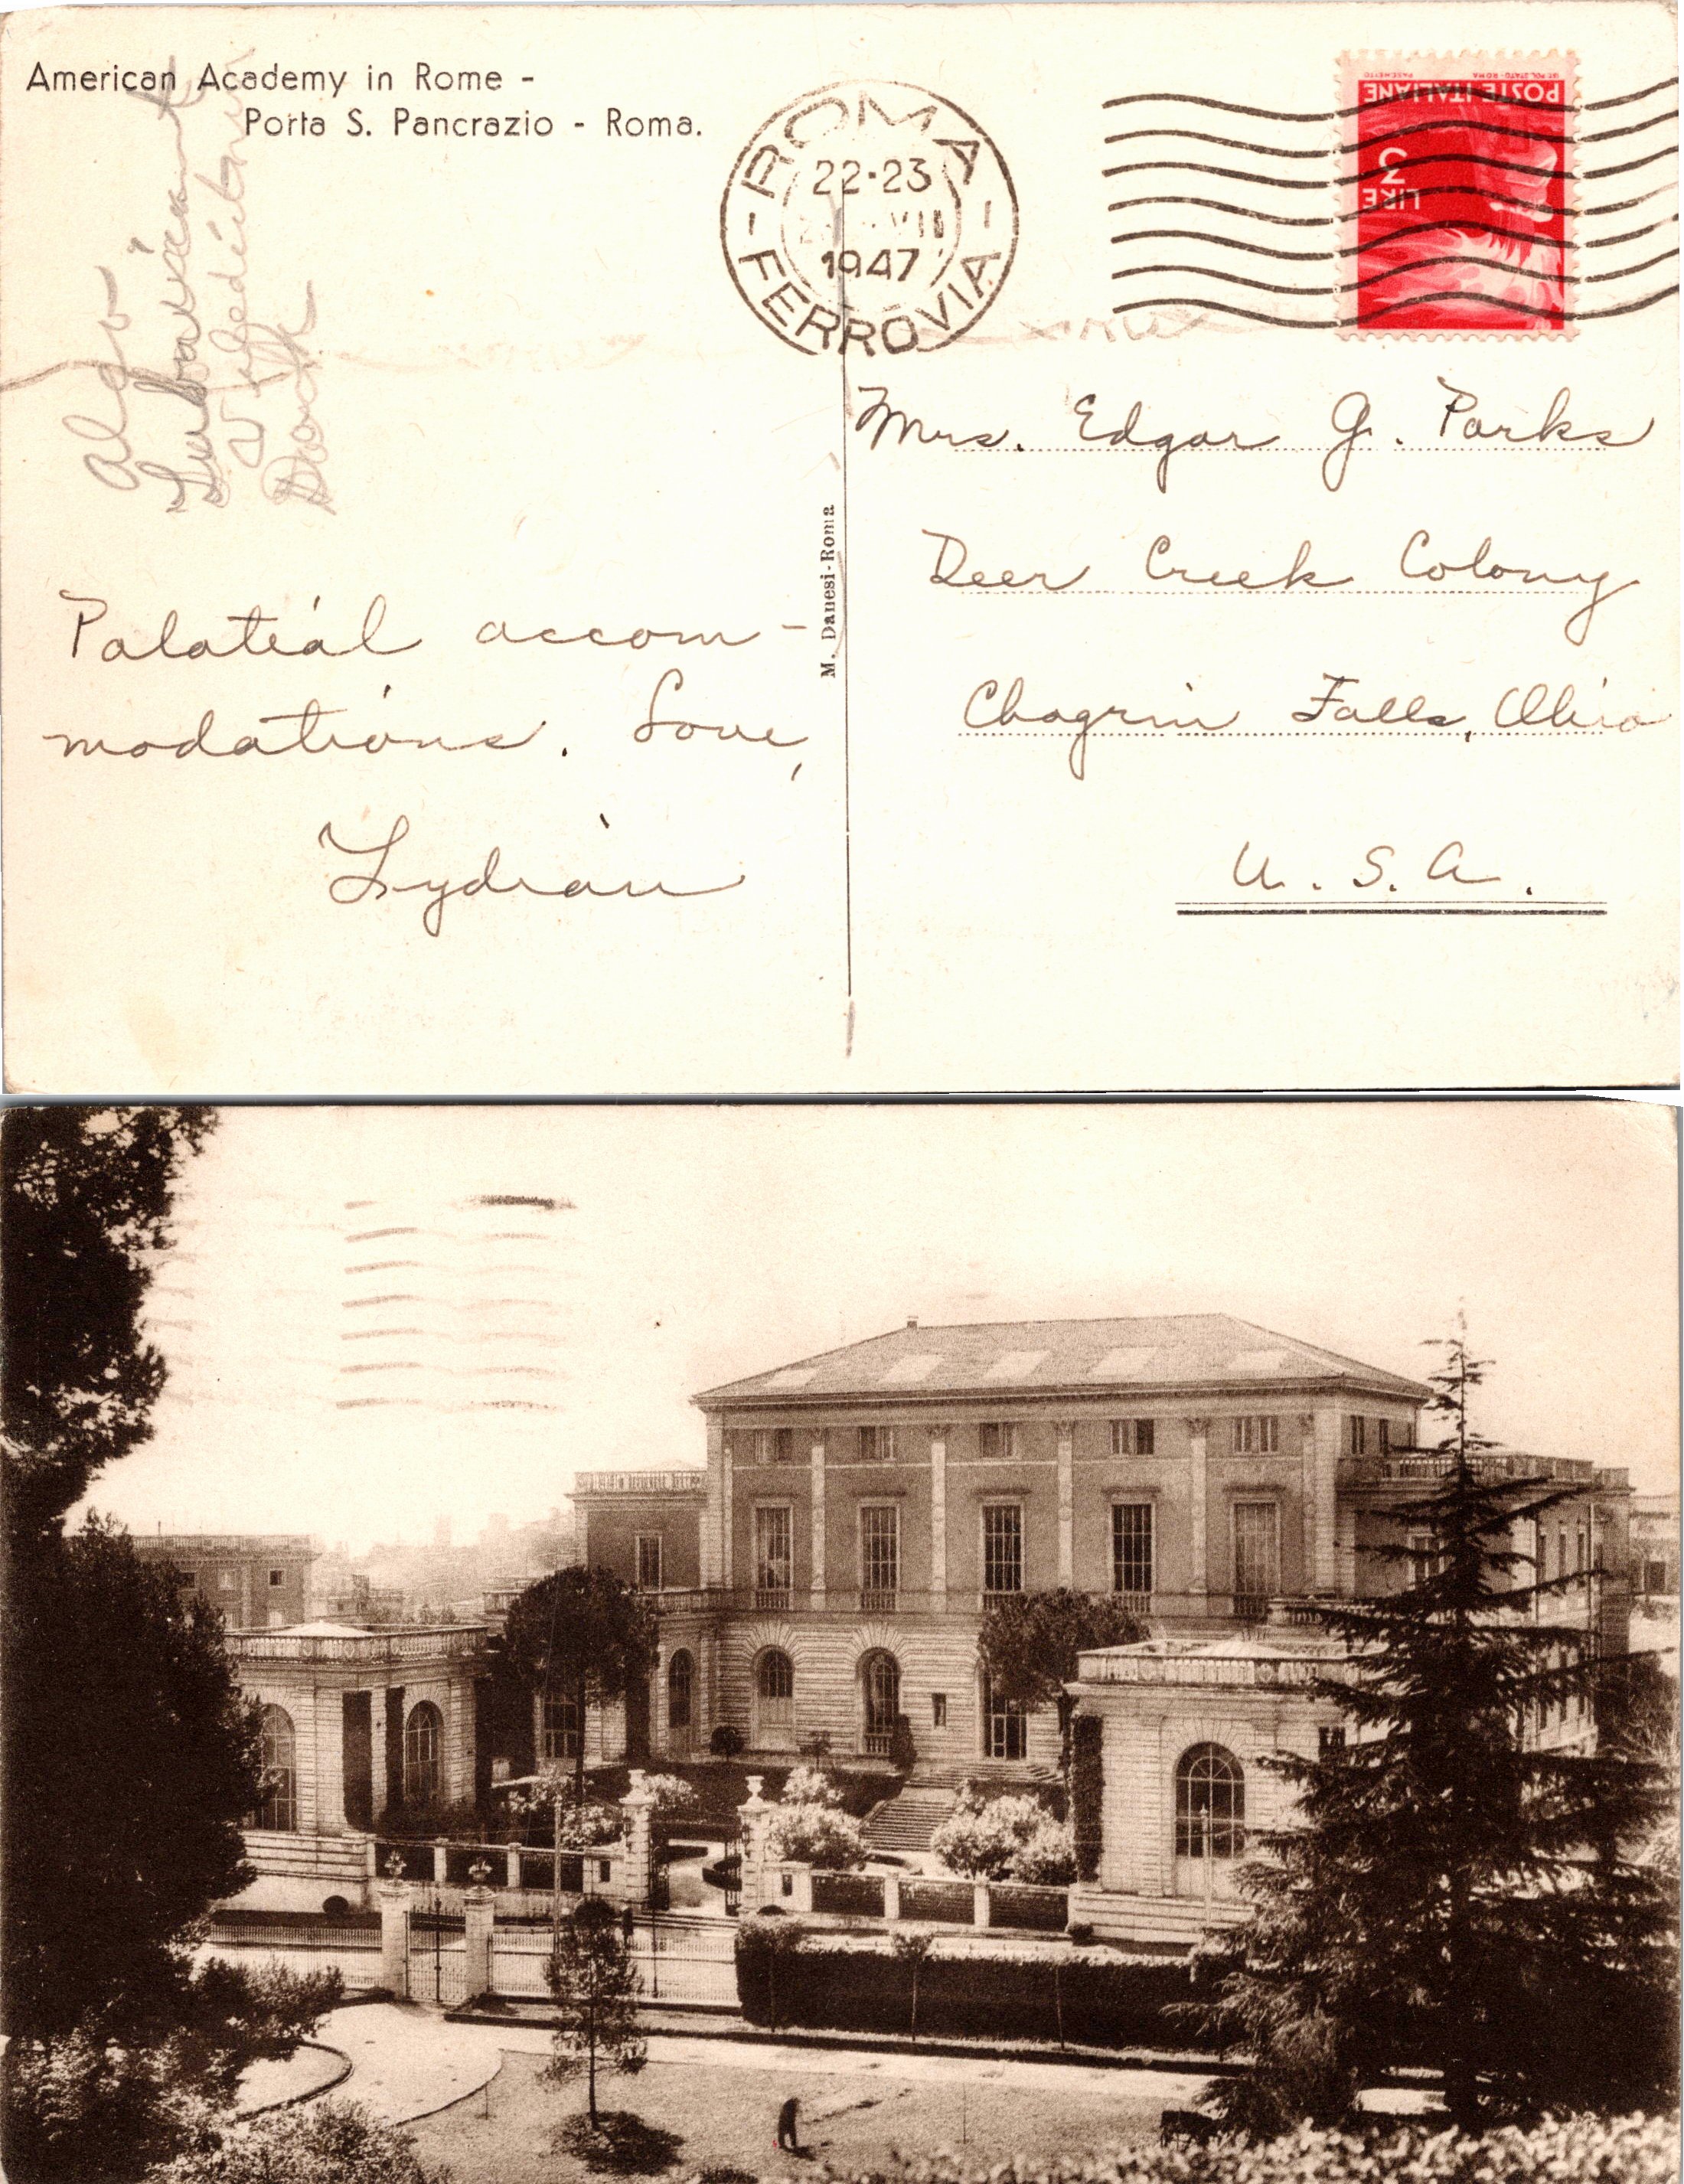 American Academy in Rome -
Porta S. Pancrazio - Roma.
ROMA
22·23
VII
1947
FERROVIA
POSTE ITALIANE
3
LIRE
Mrs. Edgar G. Parks
Deer Creek Colony
Chagrin Falls, Ohio
U. S. A.
M. Danesi-Roma
Palatial accom-
modations. Love,
Lydian